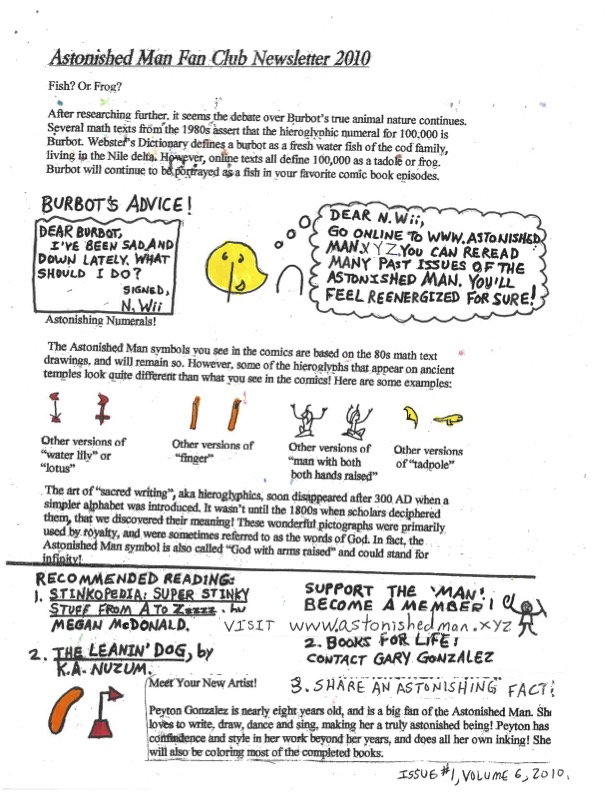 Astonished Man Fan Club Newsletter 2010
Fish? Or Frog?
After researching further, it seems the debate over Burbot's true animal nature continues.
Several math texts from the 1980s assert that the hieroglyphic numeral for 100,000 is
Burbot. Webster's Dictionary defines a burbot as a fresh water fish of the cod family,
living in the Nile delta. However, online texts all define 100,000 as a tadole or frog.
Burbot will continue to be portrayed as a fish in your favorite comic book episodes.
BURBOT'S ADVICE!
DEAR BURBOT,
I'VE BEEN SAD AND
DOWN LATELY. WHAT
SHOULD I DO?
SIGNED,
N. Wii
DEAR N. Wii,
GO ONLINE TO WWW.ASTONISHED
MAN.XYZ. YOU CAN REREAD
MANY PAST ISSUES OF THE
ASTONISHED MAN. YOU'LL
FEEL REENERGIZED FOR SURE!
Astonishing Numerals!
The Astonished Man symbols you see in the comics are based on the 80s math text
drawings, and will remain so. However, some of the hieroglyphs that appear on ancient
temples look quite different than what you see in the comics! Here are some examples:
Other versions of
"water lily" or
"lotus"
Other versions of
"finger"
Other versions of
"man with both
both hands raised"
Other versions
of "tadpole"
The art of "sacred writing", aka hieroglyphics, soon disappeared after 300 AD when a
simpler alphabet was introduced. It wasn't until the 1800s when scholars deciphered
them, that we discovered their meaning! These wonderful pictographs were primarily
used by royalty, and were sometimes referred to as the words of God. In fact, the
Astonished Man symbol is also called "God with arms raised" and could stand for
infinity!
RECOMMENDED READING:
1. STINKOPEDIA: SUPER STINKY
STUFF FROM A TO Zzzzz. by
MEGAN McDONALD.
2. THE LEANIN' DOG, by
K.A. NUZUM.
SUPPORT THE 'MAN'!
BECOME A MEMBER!
VISIT www.astonishedman.xyz
2. BOOKS FOR LIFE!
CONTACT GARY GONZALEZ
3. SHARE AN ASTONISHING FACT!
Meet Your New Artist!
Peyton Gonzalez is nearly eight years old, and is a big fan of the Astonished Man. She
loves to write, draw, dance and sing, making her a truly astonished being! Peyton has
confindence and style in her work beyond her years, and does all her own inking! She
will also be coloring most of the completed books.
ISSUE #1, VOLUME 6, 2010.